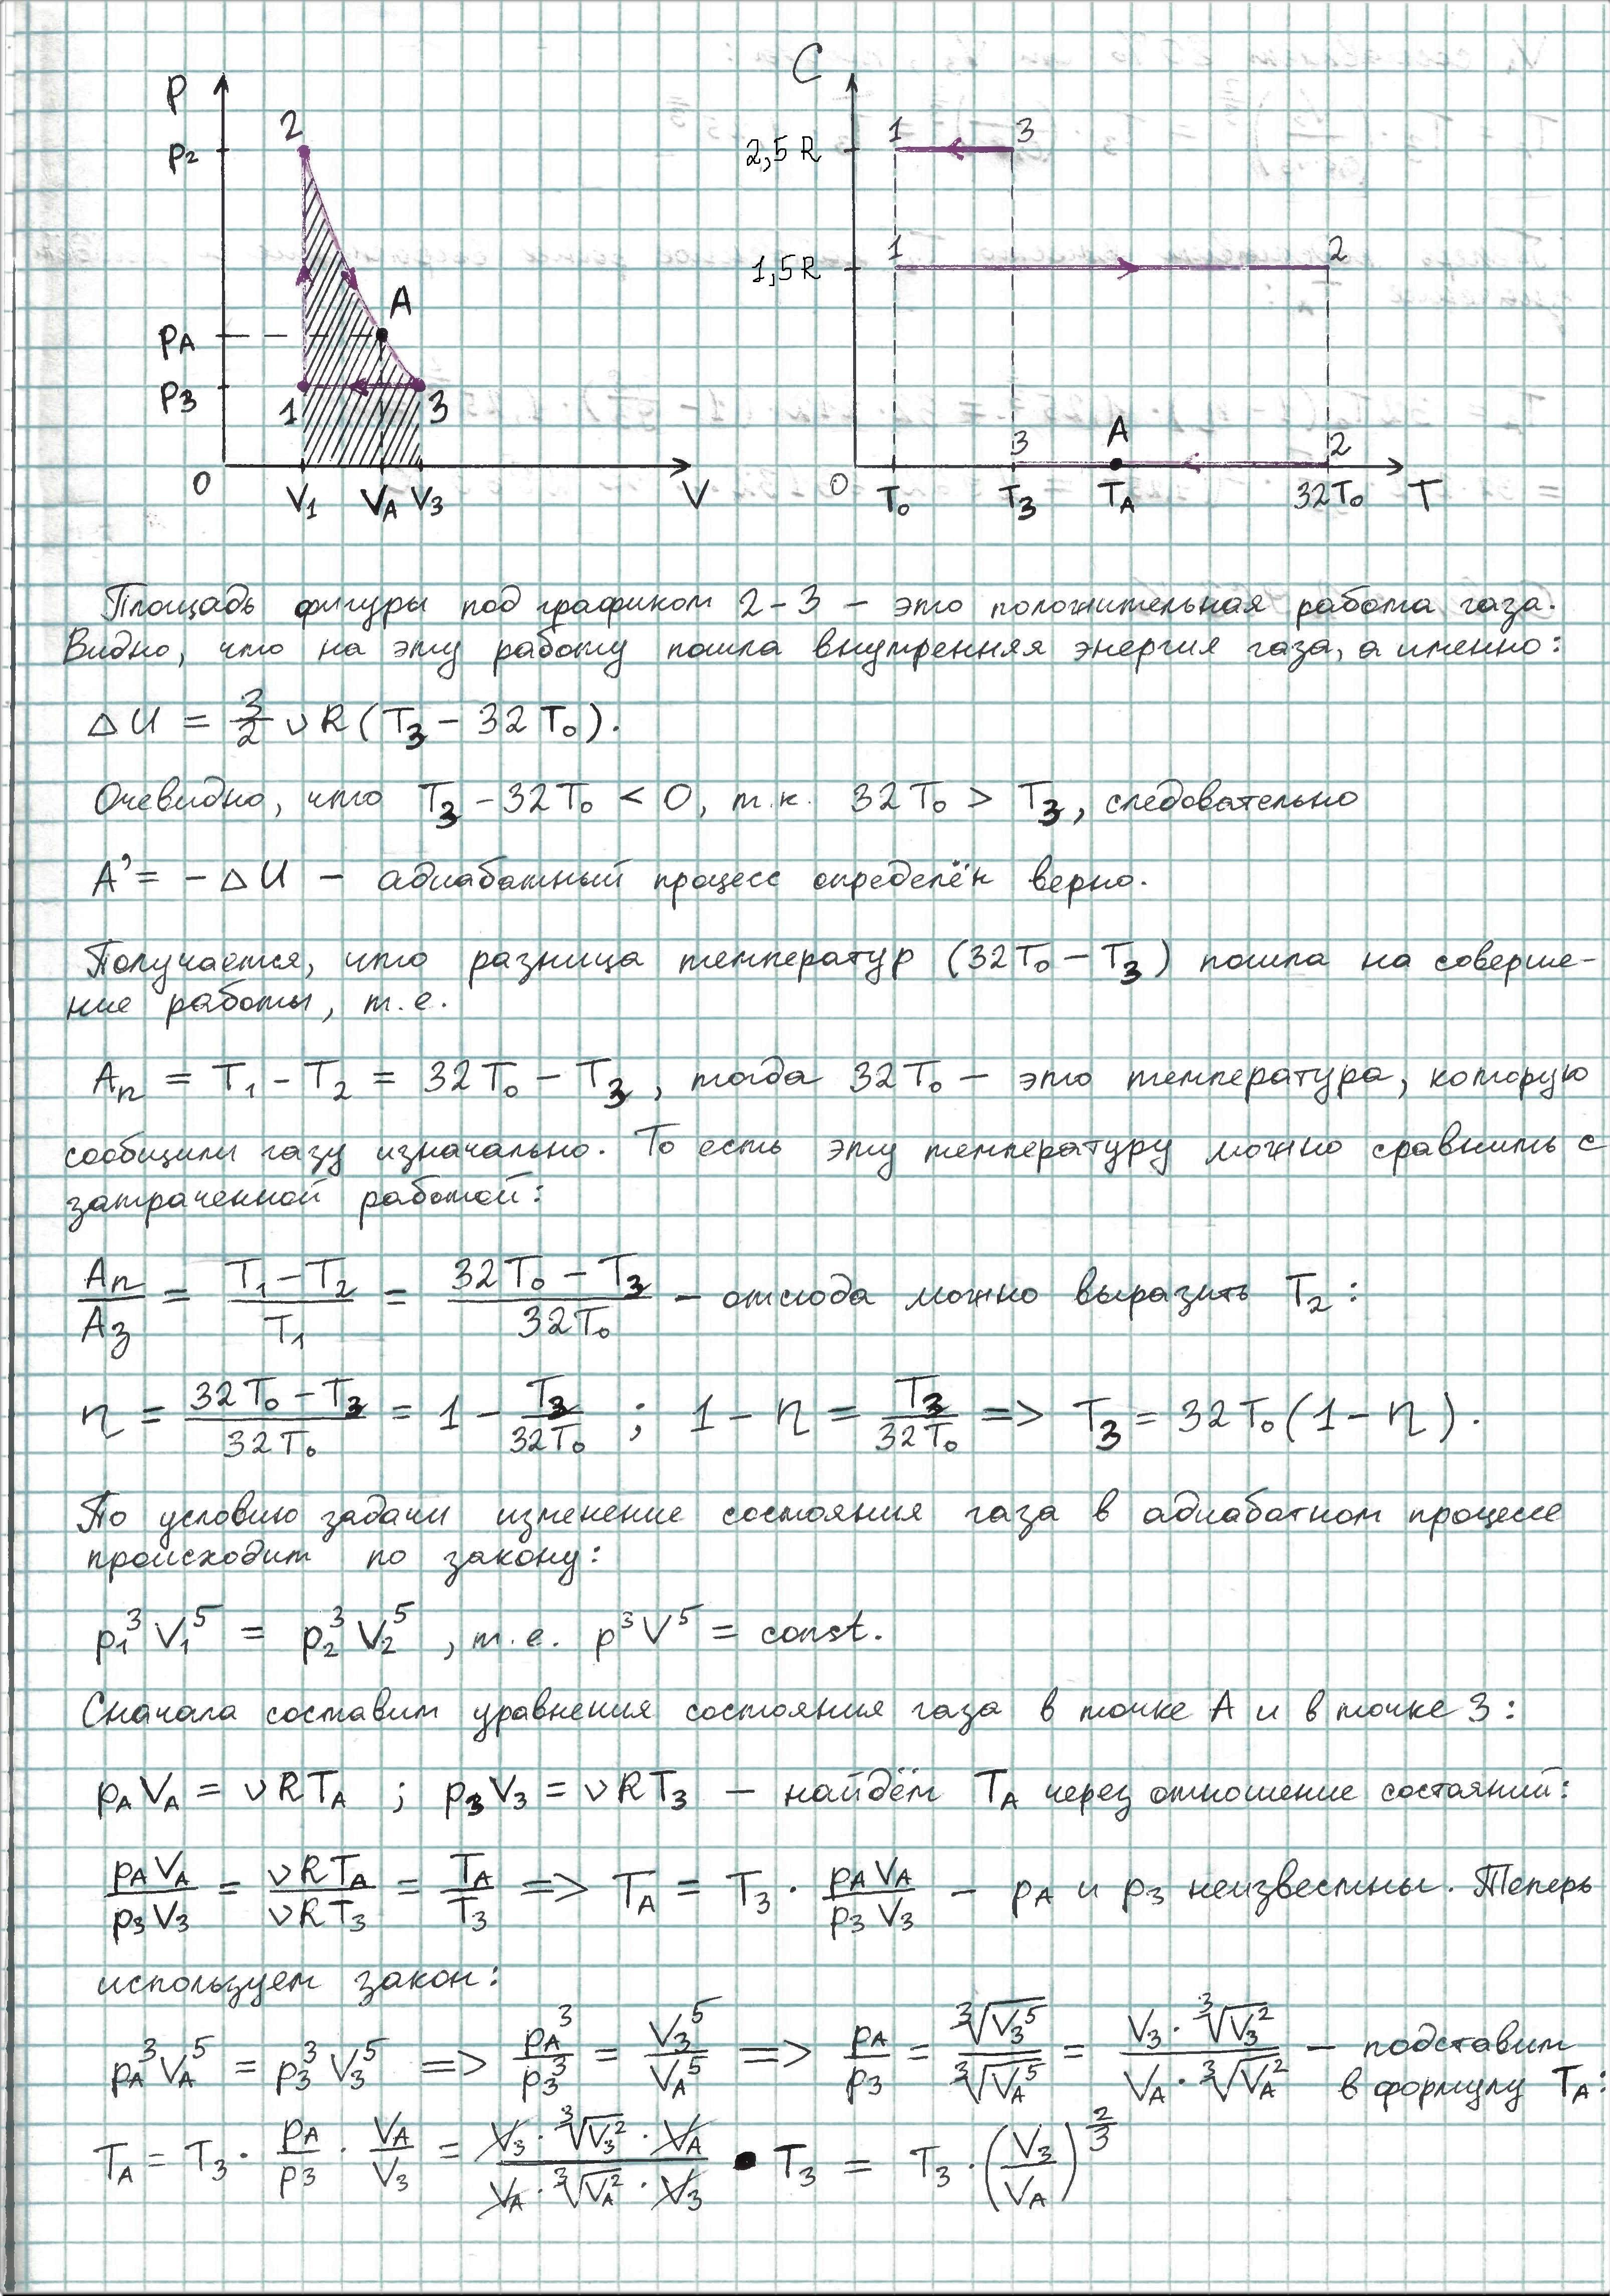 P
2
p₂
A
pA
p3
1
3
0
V1
VA
V3
V
C
2,5 R
1
3
1,5R
1
2
3
A
2
0
T₀
T3
TA
32T₀
T
Площадь фигуры под графиком 2-3 – это положительная работа газа.
Видно, что на эту работу пошла внутренняя энергия газа, а именно:
ΔU = 3/2 νR(T3 – 32T₀).
Очевидно, что T3 – 32T₀ < 0, т.к. 32T₀ > T3, следовательно
A' = – ΔU – адиабатный процесс определён верно.
Получается, что разница температур (32T₀ – T3) пошла на соверше-
ние работы, т.е.
Aп = T₁ – T₂ = 32T₀ – T3, тогда 32T₀ – это температура, которую
сообщили газу изначально. То есть эту температуру можно сравнить с
затраченной работой:
Aп/Aз = (T₁ – T₂)/T₁ = (32T₀ – T3)/32T₀ – отсюда можно выразить T₂:
η = (32T₀ – T3)/32T₀ = 1 – T3/32T₀ ; 1 – η = T3/32T₀ => T3 = 32T₀(1 – η).
По условию задачи изменение состояния газа в адиабатном процессе
происходит по закону:
p₁³V₁⁵ = p₂³V₂⁵, т.е. p³V⁵ = const.
Сначала составим уравнения состояния газа в точке A и в точке 3:
pAVA = νRTA ; p3V3 = νRT3 – найдём TA через отношение состояний:
pAVA/p3V3 = νRTA/νRT3 = TA/T3 => TA = T3 · pAVA/p3V3 – pA и p3 неизвестны. Теперь
используем закон:
pA³VA⁵ = p3³V3⁵ => pA³/p3³ = V3⁵/VA⁵ => pA/p3 = ³√V3⁵/³√VA⁵ = V3·³√V3²/VA·³√VA² – подставим
в формулу TA:
TA = T3 · pA/p3 · VA/V3 = V3·³√V3²·VA/VA·³√VA²·V3 · T3 = T3 · (V3/VA)^(2/3)